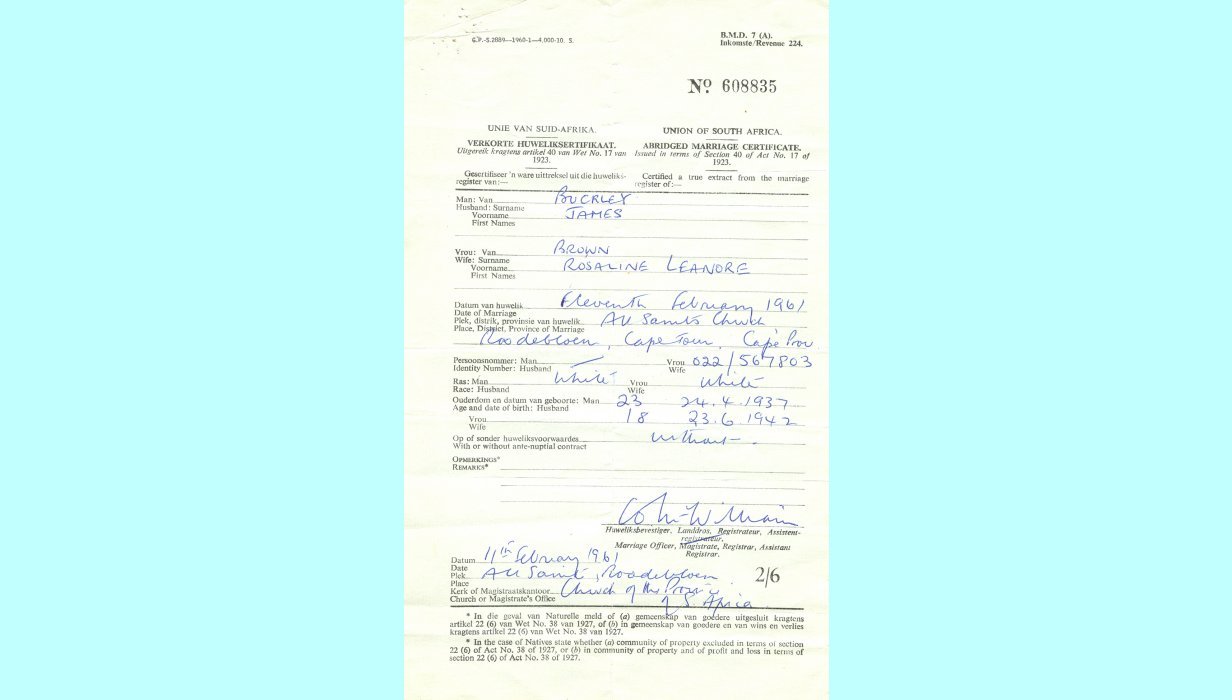 G.P.-S.2889—1960-1—4,000-10. S.
B.M.D. 7 (A).
Inkomste/Revenue 224.
No 608835
UNIE VAN SUID-AFRIKA.
VERKORTE HUWELIKSERTIFIKAAT.
Uitgereik kragtens artikel 40 van Wet No. 17 van
1923.
Gesertifiseer 'n ware uittreksel uit die huweliks-
register van:—
UNION OF SOUTH AFRICA.
ABRIDGED MARRIAGE CERTIFICATE.
Issued in terms of Section 40 of Act No. 17 of
1923.
Certified a true extract from the marriage
register of:—
Man: Van BUCKLEY
Husband: Surname
Voorname JAMES
First Names
Vrou: Van BROWN
Wife: Surname
Voorname ROSALINE LEANORE
First Names
Datum van huwelik Eleventh February 1961
Date of Marriage
Plek, distrik, provinsie van huwelik All Saints Church
Place, District, Province of Marriage
Roodebloem, Cape Town, Cape Prov
Persoonsnommer: Man Vrou 022/567803
Identity Number: Husband Wife
Ras: Man White Vrou White
Race: Husband Wife
Ouderdom en datum van geboorte: Man 23 24.4.1937
Age and date of birth: Husband
Vrou 18 23.6.1942
Wife
Op of sonder huweliksvoorwaardes without.
With or without ante-nuptial contract
OPMERKINGS*
REMARKS*
Huweliksbevestiger, Landdros, Registrateur, Assistent-
registrateur.
Marriage Officer, Magistrate, Registrar, Assistant
Registrar.
Datum 11th February 1961
Date
Plek All Saints, Roodebloem
Place
2/6
Kerk of Magistraatskantoor Church of the Prov
Church or Magistrate's Office of S. Africa
* In die geval van Naturelle meld of (a) gemeenskap van goedere uitgesluit kragtens
artikel 22 (6) van Wet No. 38 van 1927, of (b) in gemeenskap van goedere en van wins en verlies
kragtens artikel 22 (6) van Wet No. 38 van 1927.
* In the case of Natives state whether (a) community of property excluded in terms of section
22 (6) of Act No. 38 of 1927, or (b) in community of property and of profit and loss in terms of
section 22 (6) of Act No. 38 of 1927.